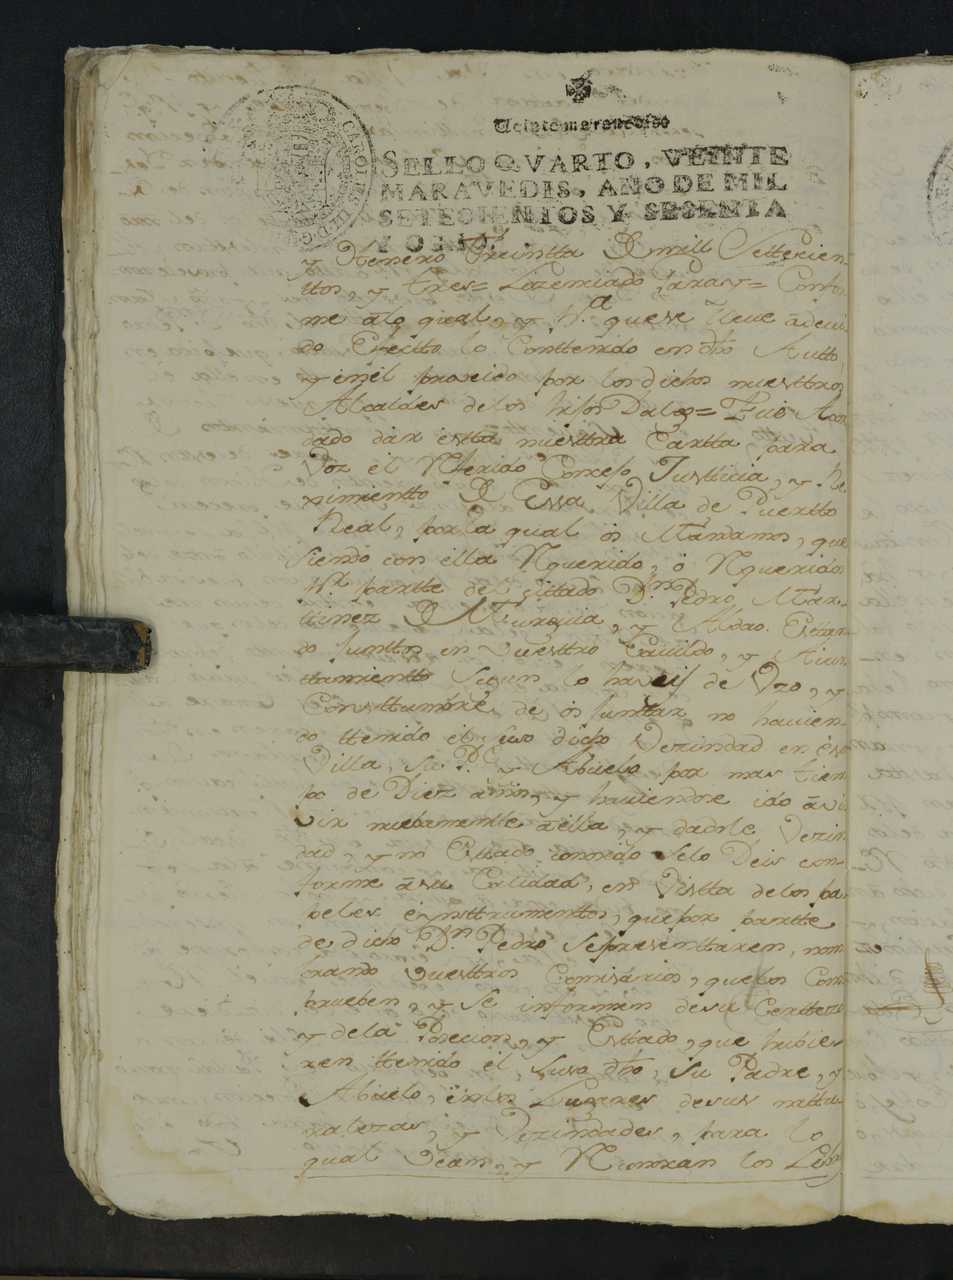 Veinte maravedis
SELLO QVARTO, VEINTE
MARAVEDIS, AÑO DE MIL
SETECIENTOS Y SESENTA
Y OCHO.
CAROLUS III D G
y Henero treintta de mill Settecien-
ttos, y tres= Lizenciado Aras = Confor-
me a lo qual, y pª. que se lleve a devi-
do Efectto lo Conttenido en dhõ Autto
y en el proveido por los dichos nuesttros
Alcaldes de los hijos Dalgo= Fue Acor-
dado dar estta nuesttra Cartta para
Voz el Referido Conzejo, Justticia, y Re-
ximientto de Essa Villa de Puertto
Real, por la qual os Mandamos, que
siendo con ella Requerido, ó Requeridos
pr. partte del zittado Dn. Pedro Mar-
tinez de Murguia, y Aldao. Estan-
do Junttos en Vuesttro Cavildo, y Aiun-
ttamientto segun lo haveis de Vzo, y
Consttumbre de os Junttar, no havien-
do ttenido el suso dicho Vezindad en esa
Villa, su Pe. y Abuelo por mas tiem-
po de Diez años, y haviendose ido a vi-
vir nuebamentte a ella, y dadole Vezin-
dad, y no Esttado conozido se lo Deis con-
forme a su Calidad, en Vistta de los pa-
peles e ynsttrumenttos, que por partte
de dicho Dn. Pedro se presenttaren, nom-
brando Vuesttros Comisarios, que los Com-
prueben, y se informen de su Certteza
y de la Posecion, y Esttado, que hubie-
ren ttenido el suso dhõ, su Padre, y
Abuelo, en los Lugares de sus nattu-
ralezas, y Vezindades, para lo
qual Vean, y Reconozcan los Lib.